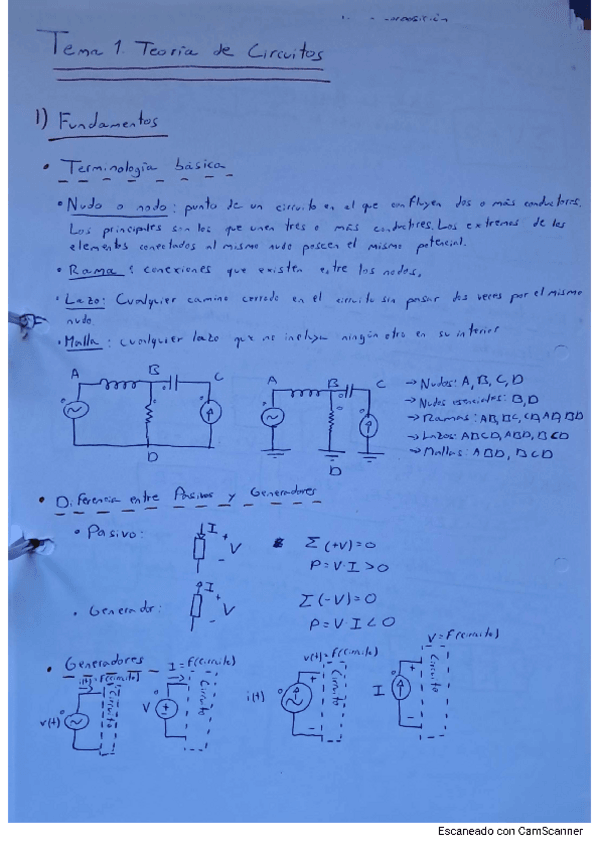 Tema 1. Teoría de Circuitos
1) Fundamentos
• Terminología básica
• Nudo o nodo: punto de un circuito en el que confluyen dos o más conductores.
Los principales son los que unen tres o más conductores. Los extremos de los
elementos conectados al mismo nudo poseen el mismo potencial.
• Rama: conexiones que existen entre los nodos.
• Lazo: Cualquier camino cerrado en el circuito sin pasar dos veces por el mismo
nudo.
• Malla: cualquier lazo que no incluya ningún otro en su interior
A B C D
A B C D
→ Nudos: A, B, C, D
→ Nudos esenciales: B, D
→ Ramas: AB, BC, CD, AD, BD
→ Lazos: ABCD, ABD, BCD
→ Mallas: ABD, BCD
• Diferencia entre Pasivos y Generadores
• Pasivo: I + V - Σ(+V)=0
P=V·I>0
• Generador: I + V - Σ(-V)=0
P=V·I<0
• Generadores
i(t)=F(circuito) v(t) Circuito
I=F(circuito) V + Circuito
v(t)=F(circuito) i(t) + - Circuito
V=F(circuito) I + - Circuito
Escaneado con CamScanner